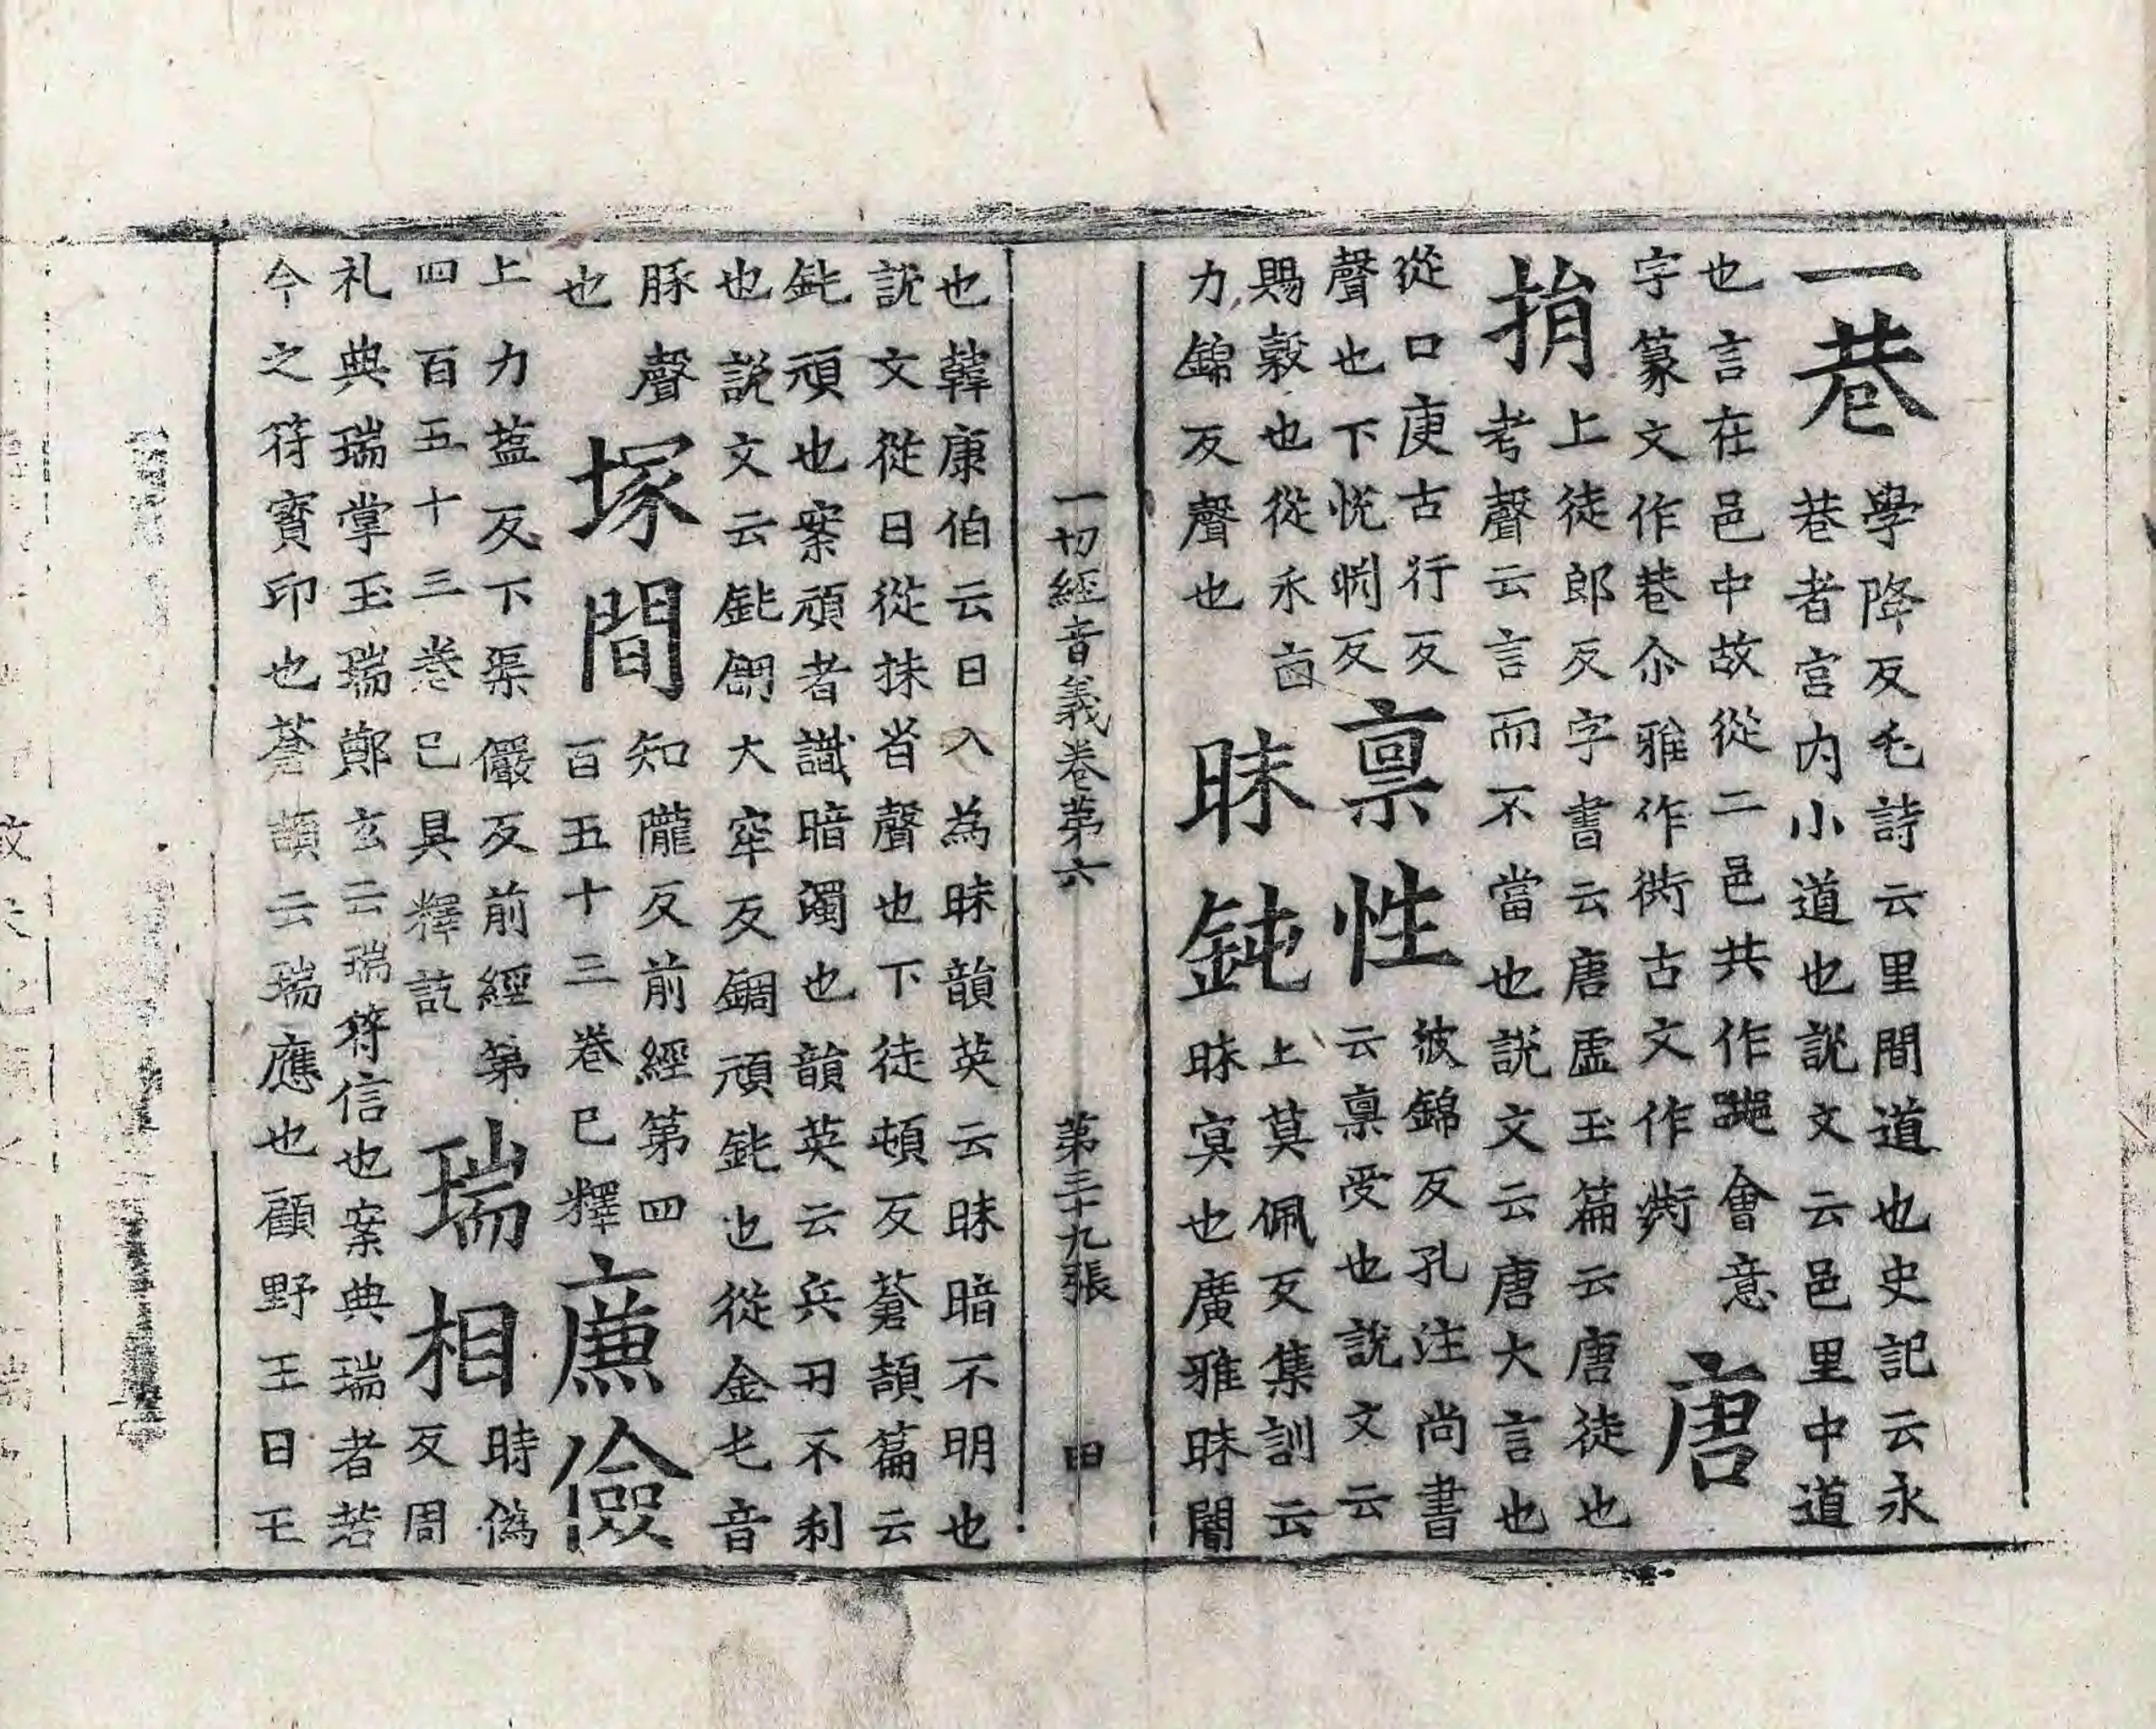 一巷
學降反毛詩云里閒道也史記云永
巷者宮内小道也說文云邑里中道
也言在邑中故從二邑共作𨛜會意
字篆文作巷尒雅作衖古文作𧗞
唐
捐
上徒郎反字書云唐虛玉篇云唐徒也
考聲云言而不當也說文云唐大言也
從口庚古行反
聲也下悅𣇄反
稟性
彼錦反孔注尚書
云稟受也說文云
賜穀也從禾㐭
力錦反聲也
昧鈍
上莫佩反集訓云
昧冥也廣雅昧闇
一切經音義卷第六
第三十九張
田
也韓康伯云日入為昧韻英云昧暗不明也
說文從日從抹省聲也下徒頓反蒼頡篇云
鈍頑也案頑者識暗濁也韻英云兵刃不利
也說文云鈍錭大牢反錭頑鈍也從金屯音
豚聲
也
塚間
知隴反前經第四
百五十三卷已釋
廉儉
上力葢反下渠儼反前經第
四百五十三卷已具釋訖
瑞相
時偽
反周
礼典瑞掌玉瑞鄭玄云瑞符信也案典瑞者若
今之符寶印也蒼頡云瑞應也顧野王曰王